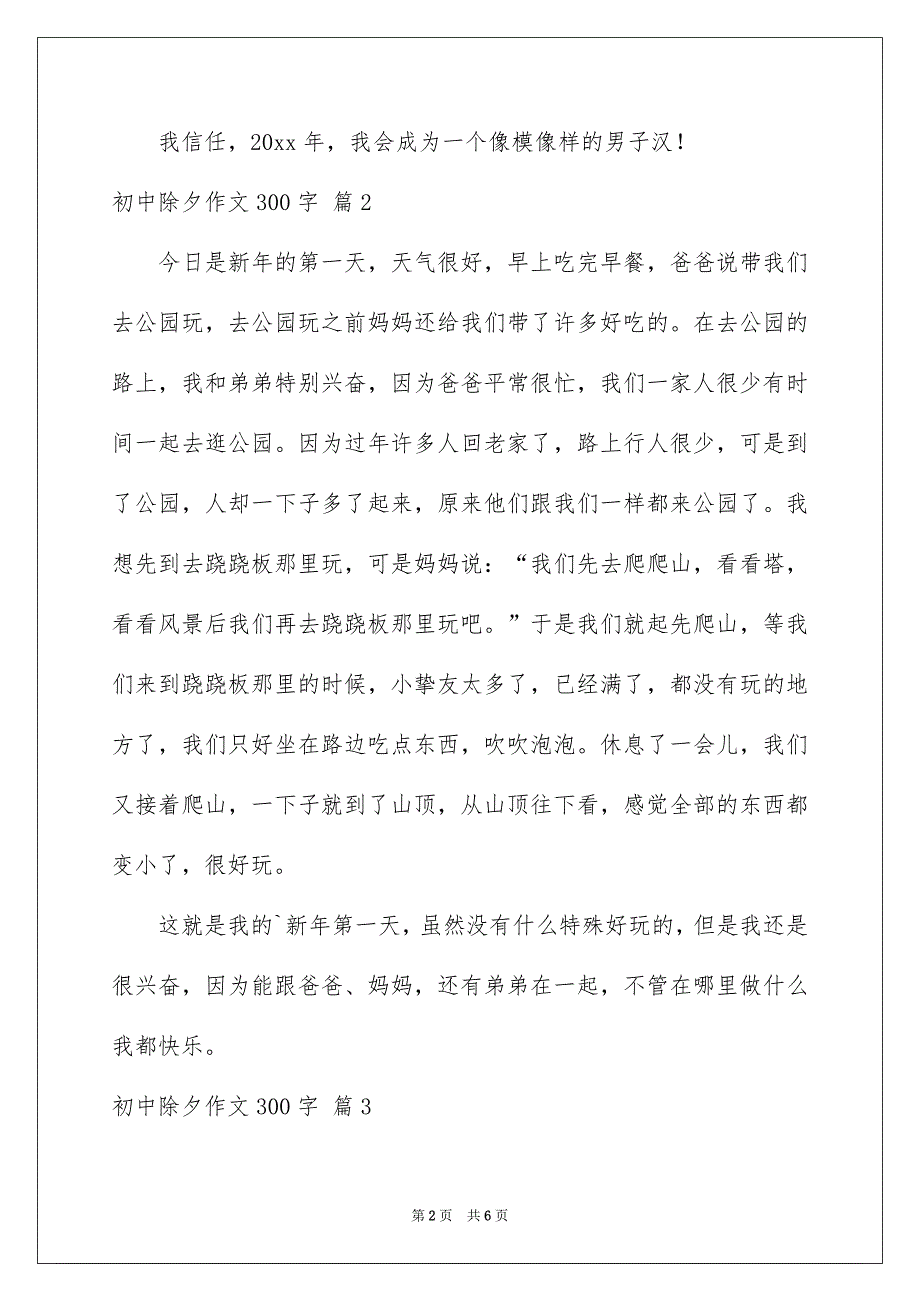 我信任，20xx 年，我会成为一个像模像样的男子汉！
初中除夕作文 300 字 篇 2
今日是新年的第一天，天气很好，早上吃完早餐，爸爸说带我们
去公园玩，去公园玩之前妈妈还给我们带了许多好吃的。在去公园的
路上，我和弟弟特别兴奋，因为爸爸平常很忙，我们一家人很少有时
间一起去逛公园。因为过年许多人回老家了，路上行人很少，可是到
了公园，人却一下子多了起来，原来他们跟我们一样都来公园了。我
想先到去跷跷板那里玩，可是妈妈说：“我们先去爬爬山，看看塔，
看看风景后我们再去跷跷板那里玩吧。”于是我们就起先爬山，等我
们来到跷跷板那里的时候，小挚友太多了，已经满了，都没有玩的地
方了，我们只好坐在路边吃点东西，吹吹泡泡。休息了一会儿，我们
又接着爬山，一下子就到了山顶，从山顶往下看，感觉全部的东西都
变小了，很好玩。
这就是我的`新年第一天，虽然没有什么特殊好玩的，但是我还是
很兴奋，因为能跟爸爸、妈妈，还有弟弟在一起，不管在哪里做什么
我都快乐。
初中除夕作文 300 字 篇 3
第 2 页 共 6 页